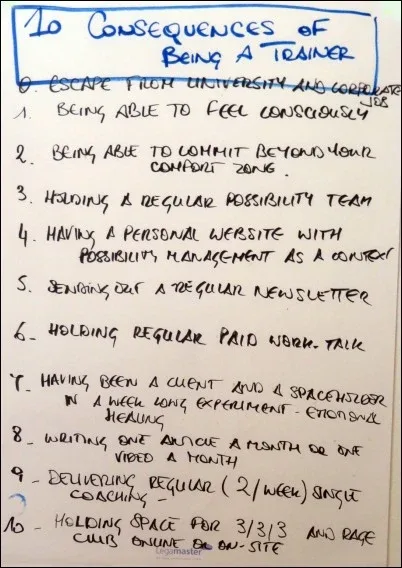 10 CONSEQUENCES OF
BEING A TRAINER
0 ESCAPE FROM UNIVERSITY AND CORPORATE
JOB
1. BEING ABLE TO FEEL CONSCIOUSLY
2. BEING ABLE TO COMMIT BEYOND YOUR
COMFORT ZONE.
3. HOLDING A REGULAR POSSIBILITY TEAM
4. HAVING A PERSONAL WEBSITE WITH
POSSIBILITY MANAGEMENT AS A CONTEXT
5. SENDING OUT A REGULAR NEWSLETTER
6- HOLDING REGULAR PAID WORK-TALK
7- HAVING BEEN A CLIENT AND A SPACEHOLDER
IN A WEEK LONG EXPERIMENT - ETIONAL
HEALING
8- WRITING ONE ARTICLE A MONTH OR ONE
VIDEO A MONTH
9- DELIVERING REGULAR (2/WEEK) SINGLE
COACHING-
10- HOLDING SPACE FOR 3/3/3 AND RAGE
CLUB ONLINE OR ON-SITE
Legamaster